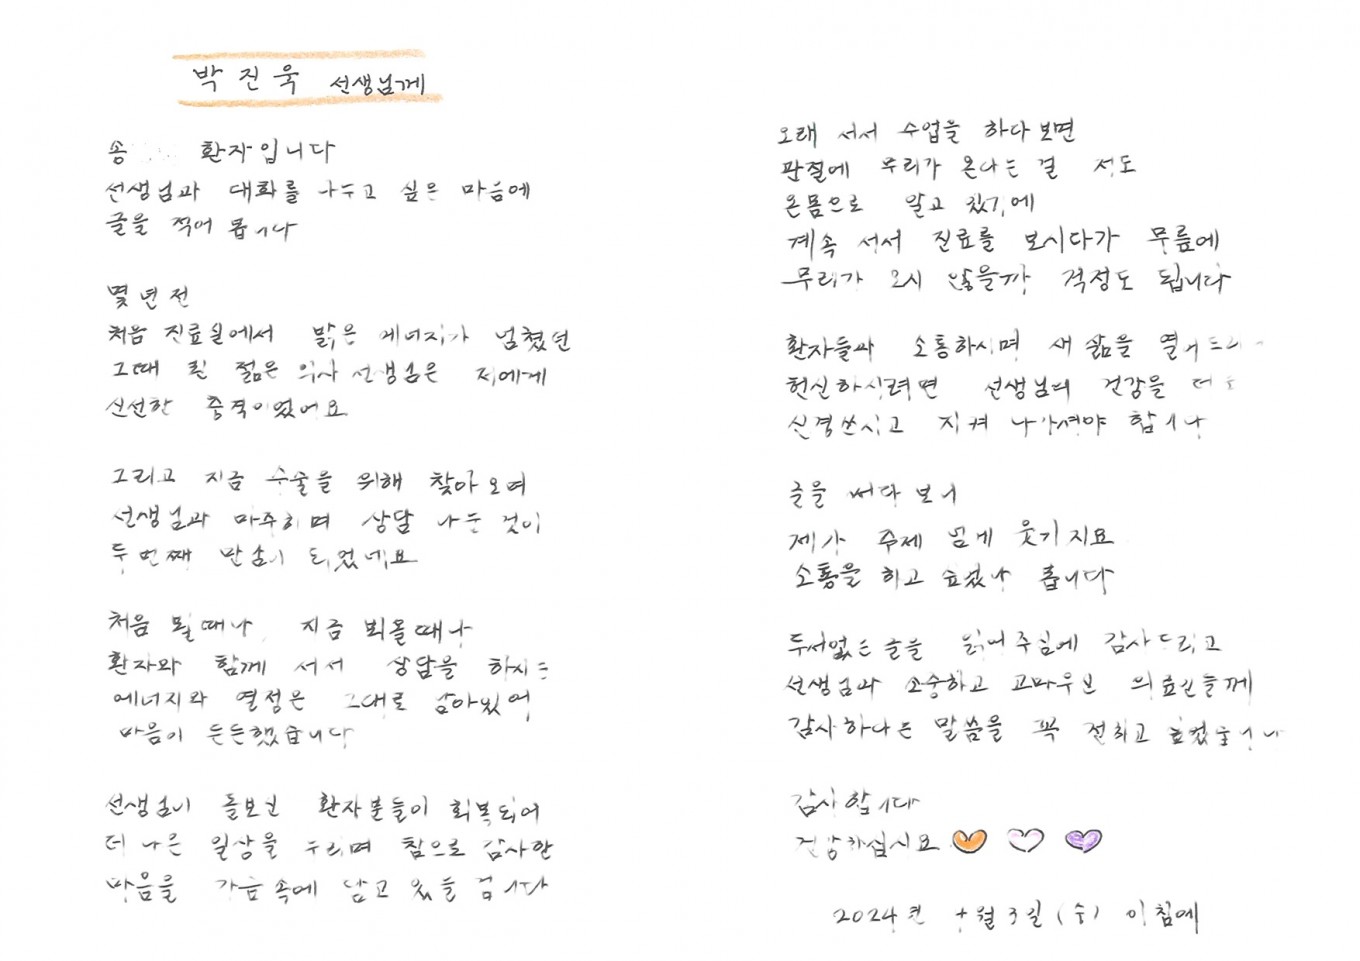 박진욱 선생님께
송 환자입니다
선생님과 대화를 나누고 싶은 마음에
글을 적어 봅니다
몇 년 전
처음 진료실에서 맑은 에너지가 넘쳤던
그때 뵌 젊은 의사 선생님은 저에게
신선한 충격이었어요
그리고 지금 수술을 위해 찾아오며
선생님과 마주하며 상담 나눈 것이
두 번째 만남이 되었네요
처음 뵐때나 지금 뵈올때나
환자와 함께 서서 상담을 하시는
에너지와 열정은 그대로 남아있어
마음이 든든했습니다
선생님이 돌보신 환자분들이 회복되어
더 나은 일상을 누리며 참으로 감사한
마음을 가슴 속에 담고 있을 겁니다
오래 서서 수업을 하다보면
관절에 무리가 온다는 걸 저도
온몸으로 알고 있기에
계속 서서 진료를 보시다가 무릎에
무리가 오시 않을까 걱정도 됩니다
환자들과 소통하시며 새 삶을
헌신하시려면 선생님의 건강을 더
신경쓰시고 지켜 나가셔야 합니다
글을 쓰다 보니
제가 주제 넘게 웃기지요
소통을 하고 싶었나 봅니다
두서없는 글을 읽어주심에 감사드리고
선생님과 소중하고 고마우신 의료인들께
감사하다는 말씀을 꼭 전하고 싶었습니다
감사합니다
건강하십시요
2024년 +월 3일(수) 아침에